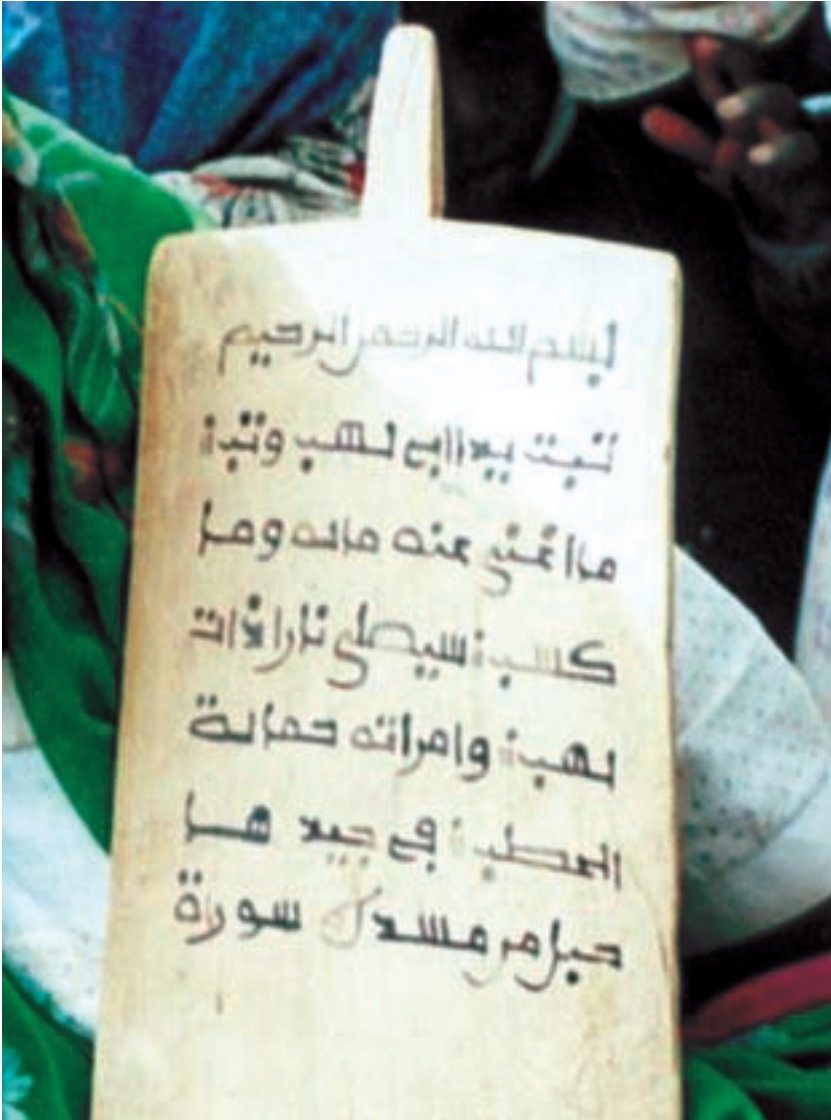 بسم الله الرحمن الرحيم
تبت يدا ابي لهب وتب
ما اغنى عنه ماله وما
كسب سيصلى نارا ذات
لهب وامراته حمالة
الحطب في جيد ها
حبل من مسد سورة